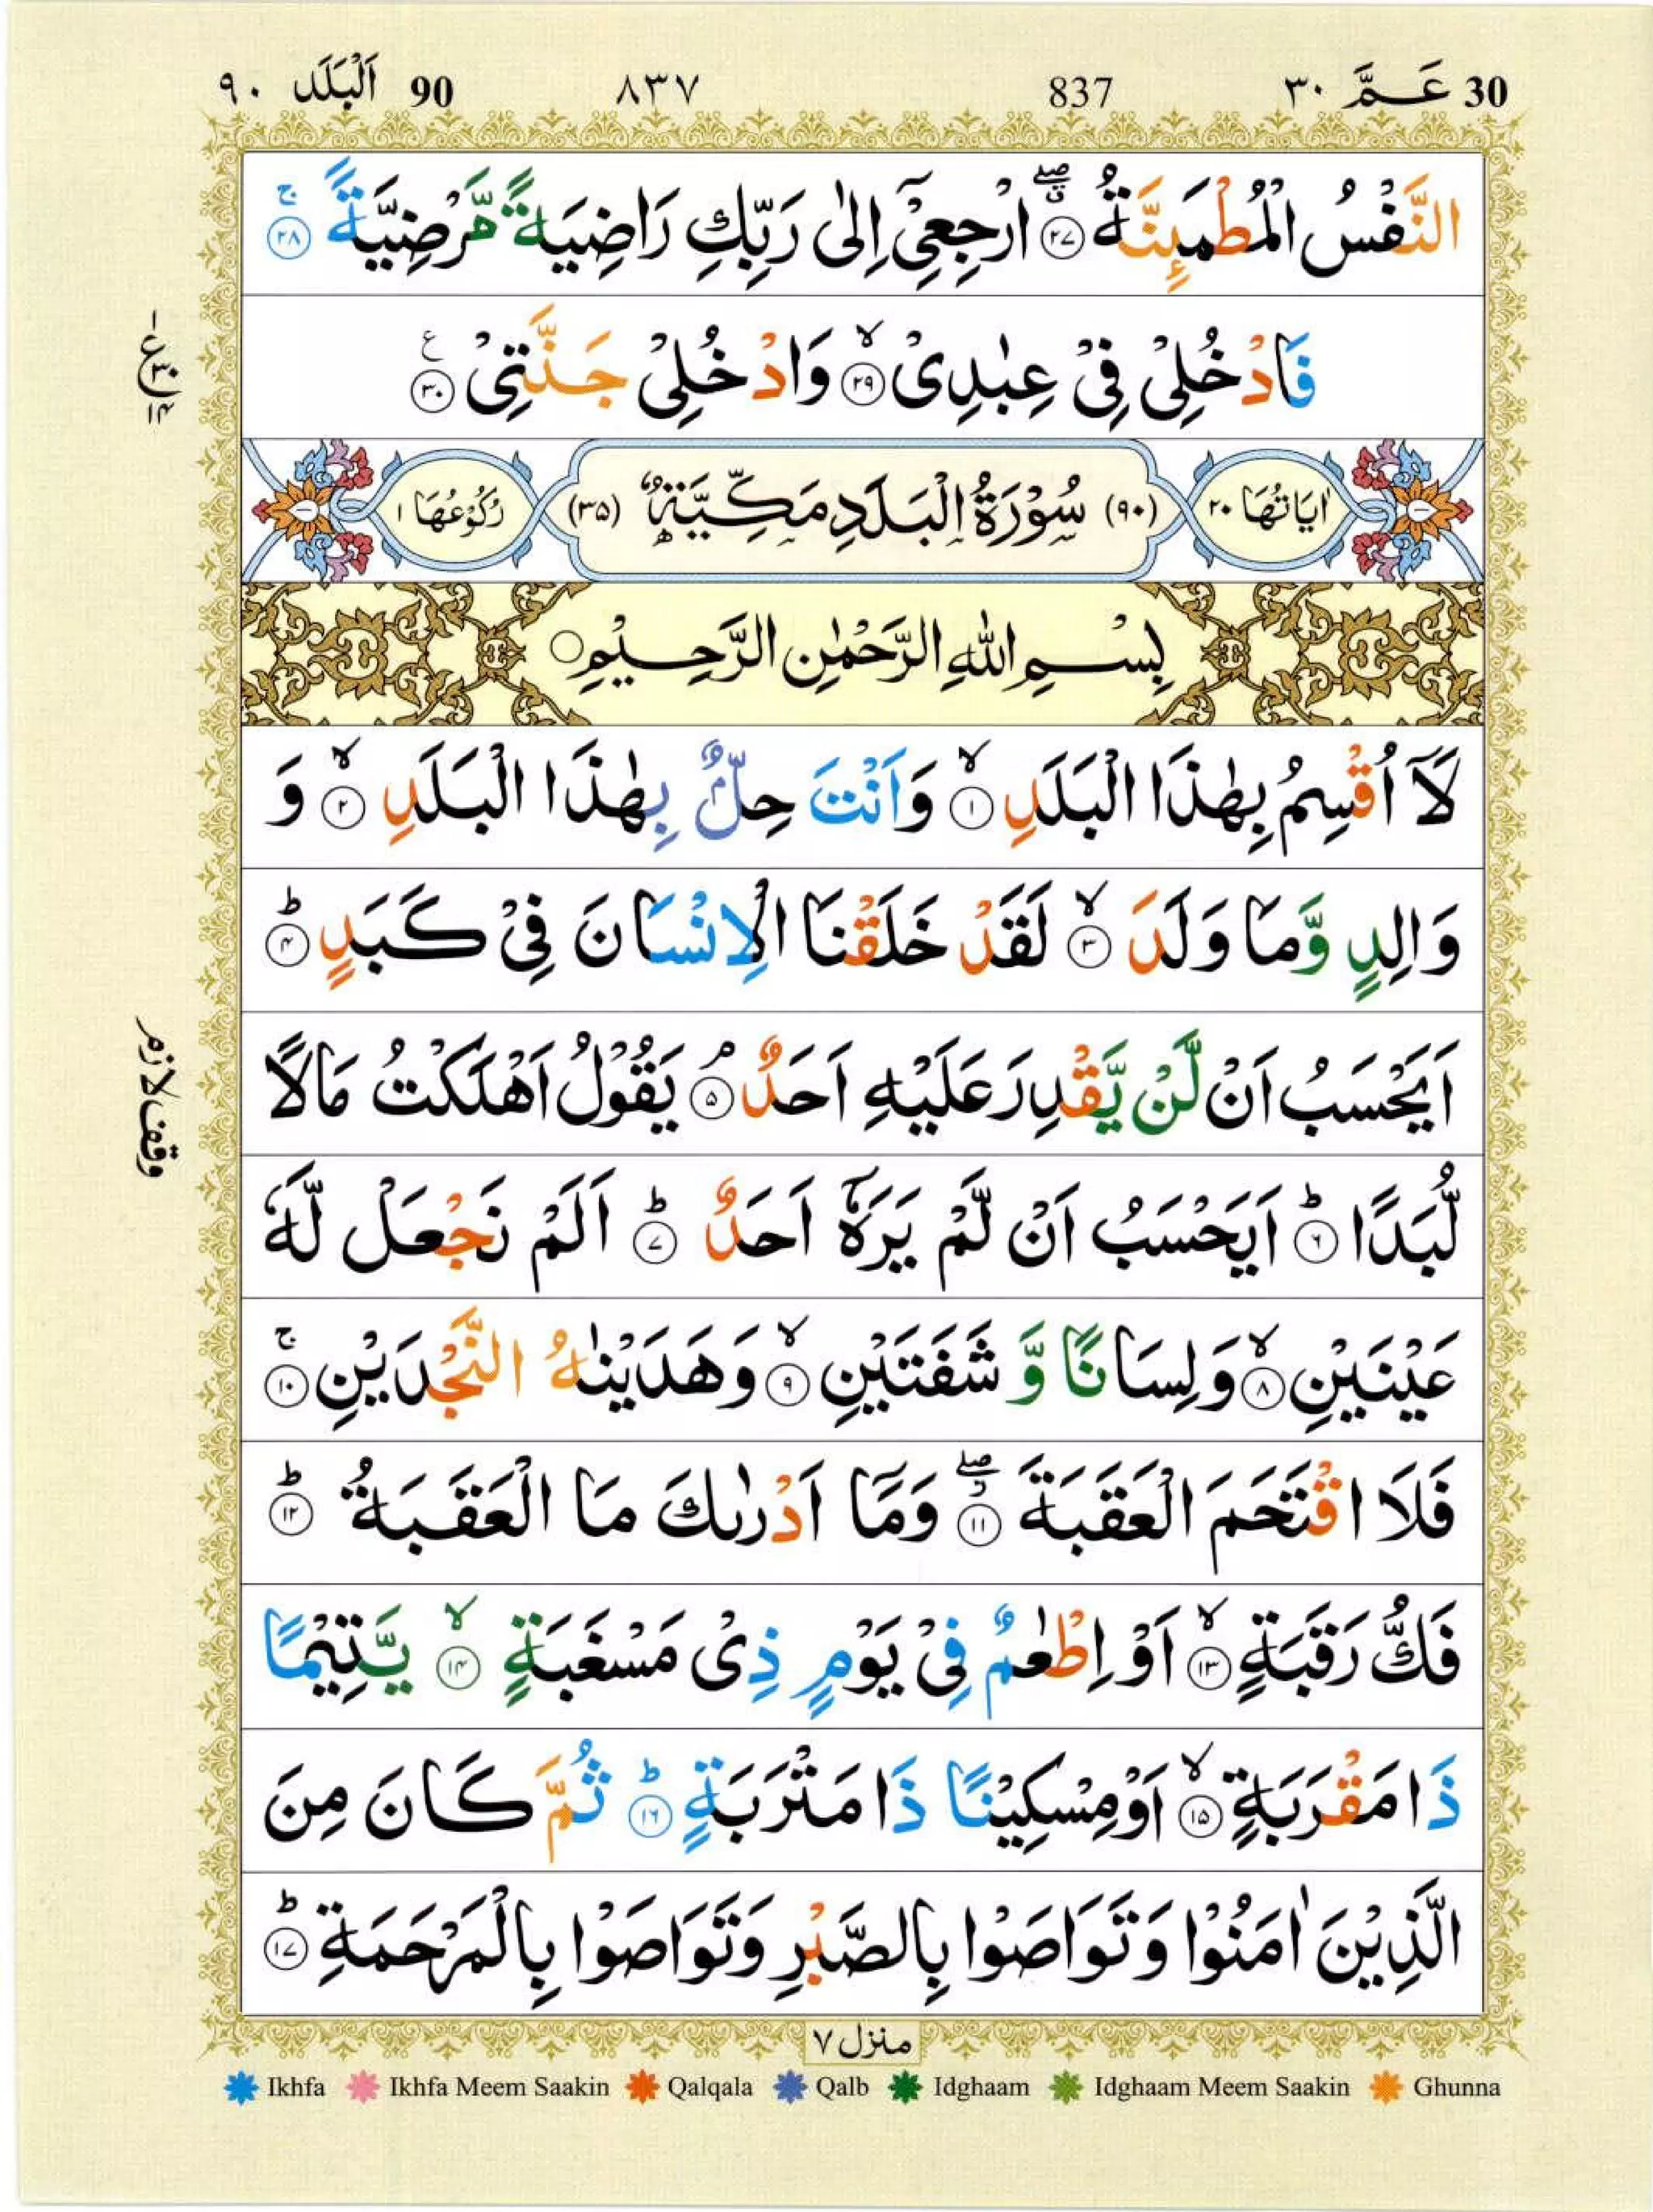 30 عَـمَّ ٣٠ 837 ٨٣٧ 90 اَلْبَلَد ٩٠
النَّفْسُ الْمُطْمَئِنَّةُ ﴿۲۷﴾ ارْجِعِیْۤ اِلٰی رَبِّكِ رَاضِیَةً مَّرْضِیَّةً ۚ﴿۲۸﴾
فَادْخُلِیْ فِیْ عِبٰدِیْ ۙ﴿۲۹﴾ وَادْخُلِیْ جَنَّتِیْ ﴿۳۰﴾
اٰیَاتُهَا ۲۰ (۹۰) سُوْرَةُ الْبَلَدِ مَكِّیَّةٌ (۳۵) رُكُوْعُهَا ۱
بِسْمِ اللّٰهِ الرَّحْمٰنِ الرَّحِیْمِ
لَاۤ اُقْسِمُ بِهٰذَا الْبَلَدِ ۙ﴿۱﴾ وَاَنْتَ حِلٌّۢ بِهٰذَا الْبَلَدِ ۙ﴿۲﴾ وَ
وَالِدٍ وَّمَا وَلَدَ ۙ﴿۳﴾ لَقَدْ خَلَقْنَا الْاِنْسَانَ فِیْ كَبَدٍ ؕ﴿۴﴾
اَیَحْسَبُ اَنْ لَّنْ یَّقْدِرَ عَلَیْهِ اَحَدٌ ۘ﴿۵﴾ یَقُوْلُ اَهْلَكْتُ مَالًا
لُّبَدًا ؕ﴿۶﴾ اَیَحْسَبُ اَنْ لَّمْ یَرَهٗۤ اَحَدٌ ؕ﴿۷﴾ اَلَمْ نَجْعَلْ لَّهٗ
عَیْنَیْنِ ۙ﴿۸﴾ وَلِسَانًا وَّ شَفَتَیْنِ ۙ﴿۹﴾ وَهَدَیْنٰهُ النَّجْدَیْنِ ۚ﴿۱۰﴾
فَلَا اقْتَحَمَ الْعَقَبَةَ ﴿۱۱﴾ وَمَاۤ اَدْرٰىكَ مَا الْعَقَبَةُ ؕ﴿۱۲﴾
فَكُّ رَقَبَةٍ ۙ﴿۱۳﴾ اَوْ اِطْعٰمٌ فِیْ یَوْمٍ ذِیْ مَسْغَبَةٍ ۙ﴿۱۴﴾ یَّتِیْمًا
ذَا مَقْرَبَةٍ ۙ﴿۱۵﴾ اَوْ مِسْكِیْنًا ذَا مَتْرَبَةٍ ؕ﴿۱۶﴾ ثُمَّ كَانَ مِنَ
الَّذِیْنَ اٰمَنُوْا وَتَوَاصَوْا بِالصَّبْرِ وَتَوَاصَوْا بِالْمَرْحَمَةِ ؕ﴿۱۷﴾
وقف لازم
منزل ۷
Ikhfa Ikhfa Meem Saakin Qalqala Qalb Idghaam Idghaam Meem Saakin Ghunna